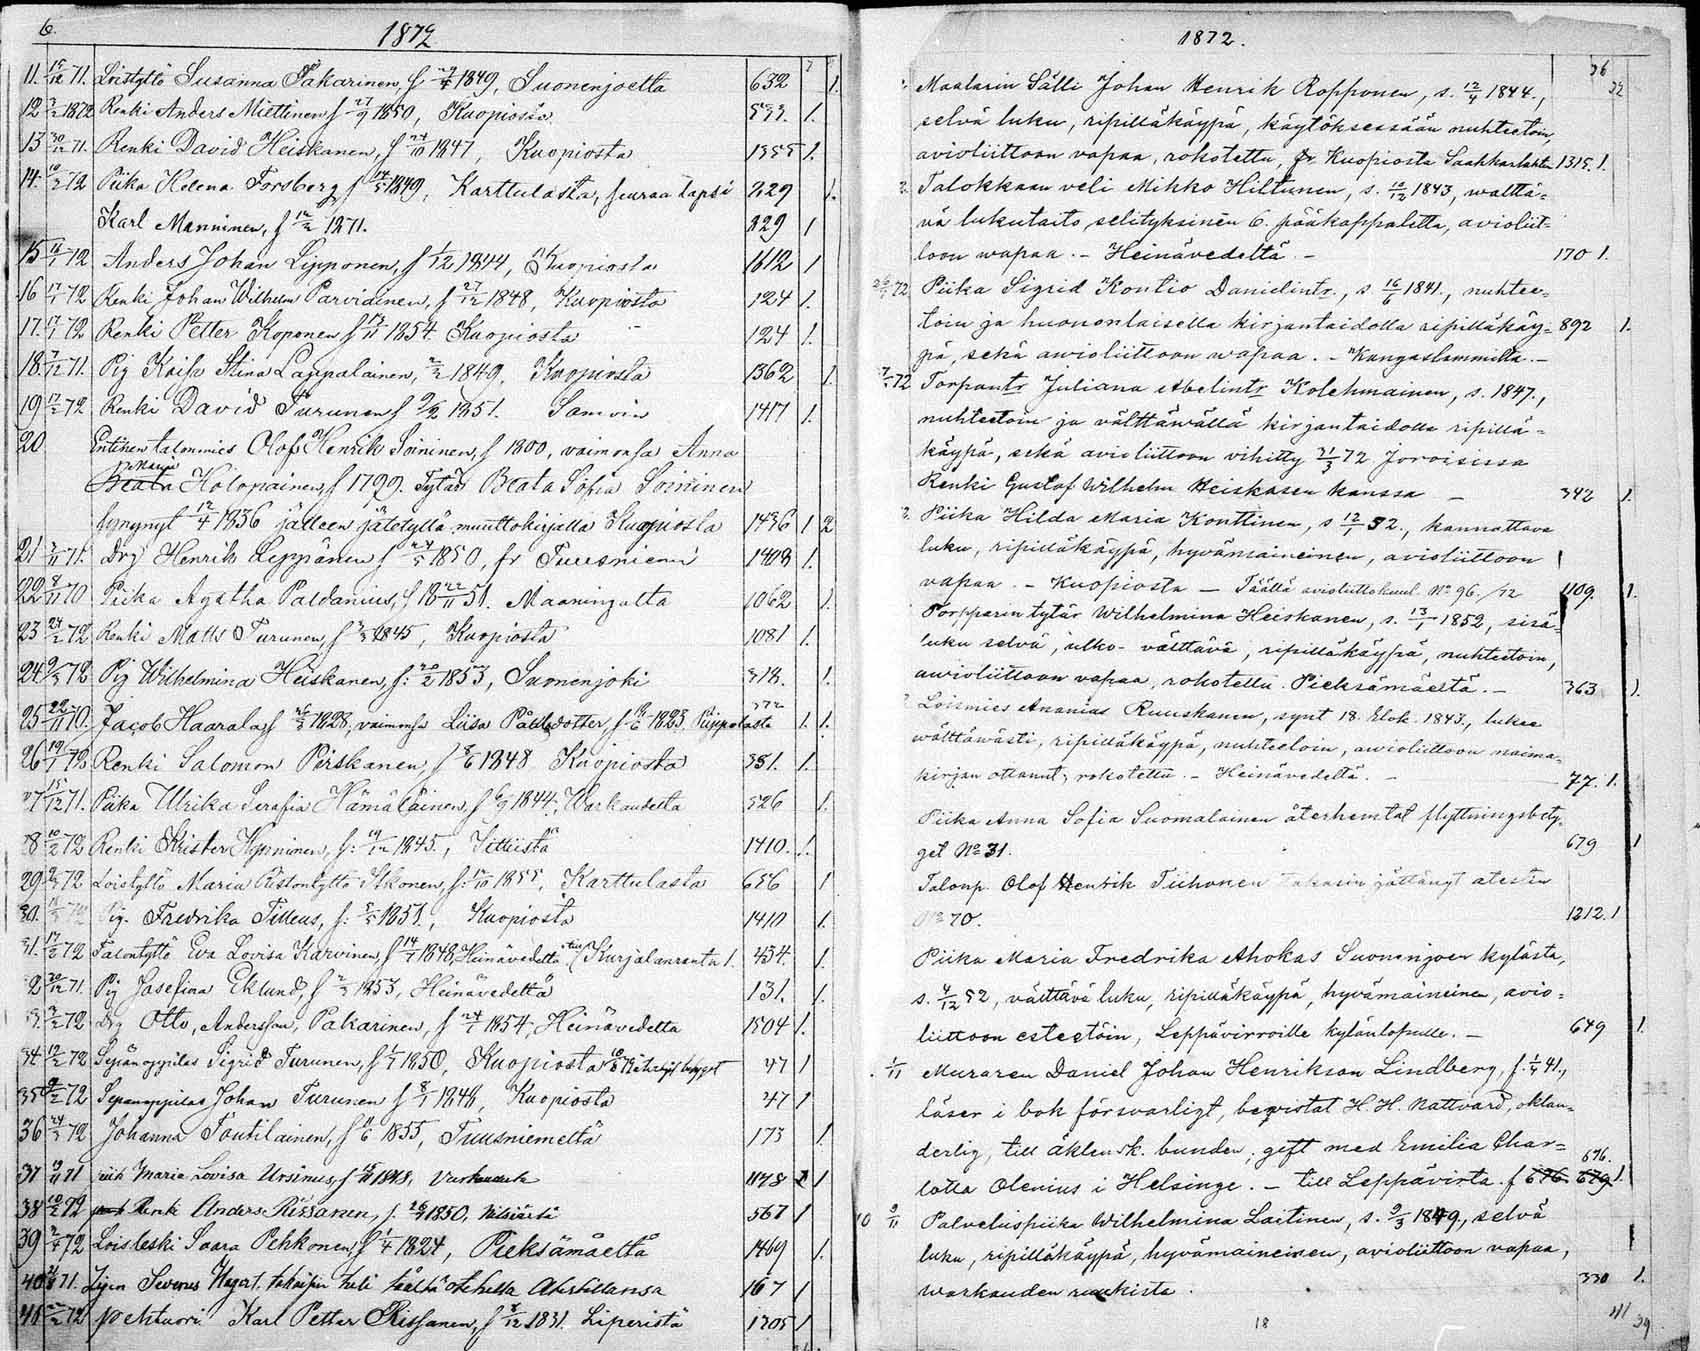 6.
1872
11. 15/12 71. Loistyttö Susanna Pakarinen, f 1849, Suonenjoelta 632 1.
12 1872 Renki Anders Miettinen f 27/9 1850, Kuopiosta 1.
13 30/12 71. Renki David Heiskanen, f 24/10 1847, Kuopiosta 1355 1.
14. 72 Piika Helena Forsberg f 14/5 1849, Karttulasta, seuraa lapsi 829 1.
Karl Manninen, f 1871. 829 1
15 72 Anders Johan Lipponen, f 1/12 1844, Kuopiosta 1612 1
16 17/1 72 Renki Johan Wilhelm Parviainen, f 27/12 1848, Kuopiosta 124 1.
17. 17/1 72 Renki Petter Koponen f 13/11 1854. Kuopiosta 124 1.
18. 7/12 71. Pig Kaisa Stina Lappalainen, 1849, Kuopiosta 1362 1.
19 17/2 72 Renki David Turunen f 9/2 1851. 1417 1.
20 Entinen talonmies Olof Henrik Soininen, f 1800, vaimonsa Anna
Maria
Beata Holopainen, f 1799. Tytär Beata Sofia Soininen
synnynyt 17/4 1836 jälleen jätetyllä muuttokirjalla Kuopiosta 1436 1 2
21 71. Drg Henrik Leppänen f 24/5 1850, fr Tuusniemi 1408 1.
22 8/11 70 Piika Agatha Paldanius, f 18 22/11 51. Maaningalta 1062 1.
23 24/2 72 Renki Matts Turunen, f 1845, Kuopiosta 1081 1.
24 72 Pig Wilhelmina Heiskanen, f: 20/2 1853, Suonenjoki 318. 1.
25 22/11 70. Jacob Haarala f 1828, vaimonsa Liisa Påhlsdotter, f 1823. 1. 1.
26 19/1 72 Renki Salomon Pirskanen, f 8/6 1848 Kuopiosta 351. 1.
15/12 71. Piika Ulrika Serafia Hämäläinen, f 6/9 1844, Warkaudesta 526 1.
8 10/2 72 Renki Krister Kynninen, f: 19/12 1845., 1410. 1.
29 72 Loistyttö Maria Ristontyttö Itkonen, f: 1855, Karttulasta 656 1
30. Pig. Fredrika Tilleus, f: 1851., Kuopiosta 1410 1.
31. 17/2 72 Talontyttö Eva Lovisa Karvinen, f 14/7 1848, Heinävedeltä (Kurjalanranta 1. 434. 1.
2 20/12 71. Pig Josefina Eklund, f 1853, Heinävedeltä 131. 1.
72 Drg Otto, Andersson, Pakarinen, f 24/1 1854, Heinävedeltä 1504 1.
34 12/2 72 Sepänoppilas Sigrid Turunen, f 1/7 1850, Kuopiosta 47 1
35 72 Sepänoppilas Johan Turunen f 8/1 1848, Kuopiosta 47 1
36 24/3 72 Johanna Toutilainen, f 1855, Tuusniemeltä 173 1.
37 71 Maria Lovisa Ursinus, f 1848, 1178 1
38 10/2 72 Renki Anders Rissanen, f. 1850, 567 1
39 72 Loisleski Saara Pehkonen, f 1/4 1824, Pieksämäeltä 1469 1.
40 71. Severus 167 1
41 72 Karl Petter Rissanen, f 1831. Liperistä 1305 1
1872.
36
32
Maalarin Sälli Johan Henrik Ropponen, s. 12/4 1844.,
selvä luku, ripilläkäypä, käytöksessään nuhteetoin,
avioliittoon vapaa, rokotettu, fr. Kuopiosta 1315. 1.
2. Talokkaan veli Mikko Hiltunen, s. 10/12 1843, wälttä-
vä lukutaito, selityksinen 6. pääkappaletta, avioliit-
toon vapaa. - Heinävedeltä - 170 1.
72 Piika Sigrid Kontio Danielintr., s 16/6 1841., nuhtee-
toin ja huononlaisella kirjantaidolla ripilläkäy- 892 1.
pä, sekä avioliittoon wapaa. - Kangaslammilta. -
72 Torpantr Juliana Abelintr Kolehmainen, s. 1847.,
nuhteetoin ja välttäwällä kirjantaidolla ripillä-
käypä, sekä avioliittoon vihitty 31/3 72 Joroisissa
Renki Gustaf Wilhelm Heiskasen kanssa - 342 1.
Piika Hilda Maria Konttinen, s 12/1 52., kannattava
luku, ripilläkäypä, hyvämaineinen, avioliittoon
vapaa. - Kuopiosta - Täällä No 96/72 1109. 1.
Torpparin tytär Wilhelmina Heiskanen, s. 13/1 1852, sisä-
luku selvä, ulko- välttävä, ripilläkäypä, nuhteetoin,
avioliittoon vapaa, rokotettu. Pieksämäestä. - 363 1.
Loismies Ananias Ruuskanen, synt 18. Elok. 1843., lukee
wälttäwästi, ripilläkäypä, nuhteetoin, avioliittoon naima-
kirjan ottanut, rokotettu. - Heinävedeltä. - 77. 1.
Piika Anna Sofia Suomalainen återhemtat flyttningsbety-
get No 31. 679 1
Talonp. Olof Henrik Tiihonen
No 70. 1212. 1
Piika Maria Fredrika Ahokas Suonenjoen kylästä,
s. 4/12 52, välttävä luku, ripilläkäypä, hyvämaineinen, avio-
liittoon esteetöin, Leppävirroille kylänlopulle. - 649 1.
1/11 Muraren Daniel Johan Henrikson Lindberg, f. 1/4 41.,
läser i bok försvarligt, bevistat H. H. Nattvard, oklan-
derlig, till äktensk. bunden; gift med Emilia Char-
lotta Olenius i Helsinge. - till Leppävirta. f 676 679 676. 1
10 9/11 Palveluspiika Wilhelmina Laitinen, s. 9/3 1849., selvä
luku, ripilläkäypä, hyvämaineinen, avioliittoon vapaa,
warkauden ruukista. 330 1.
41 39
18